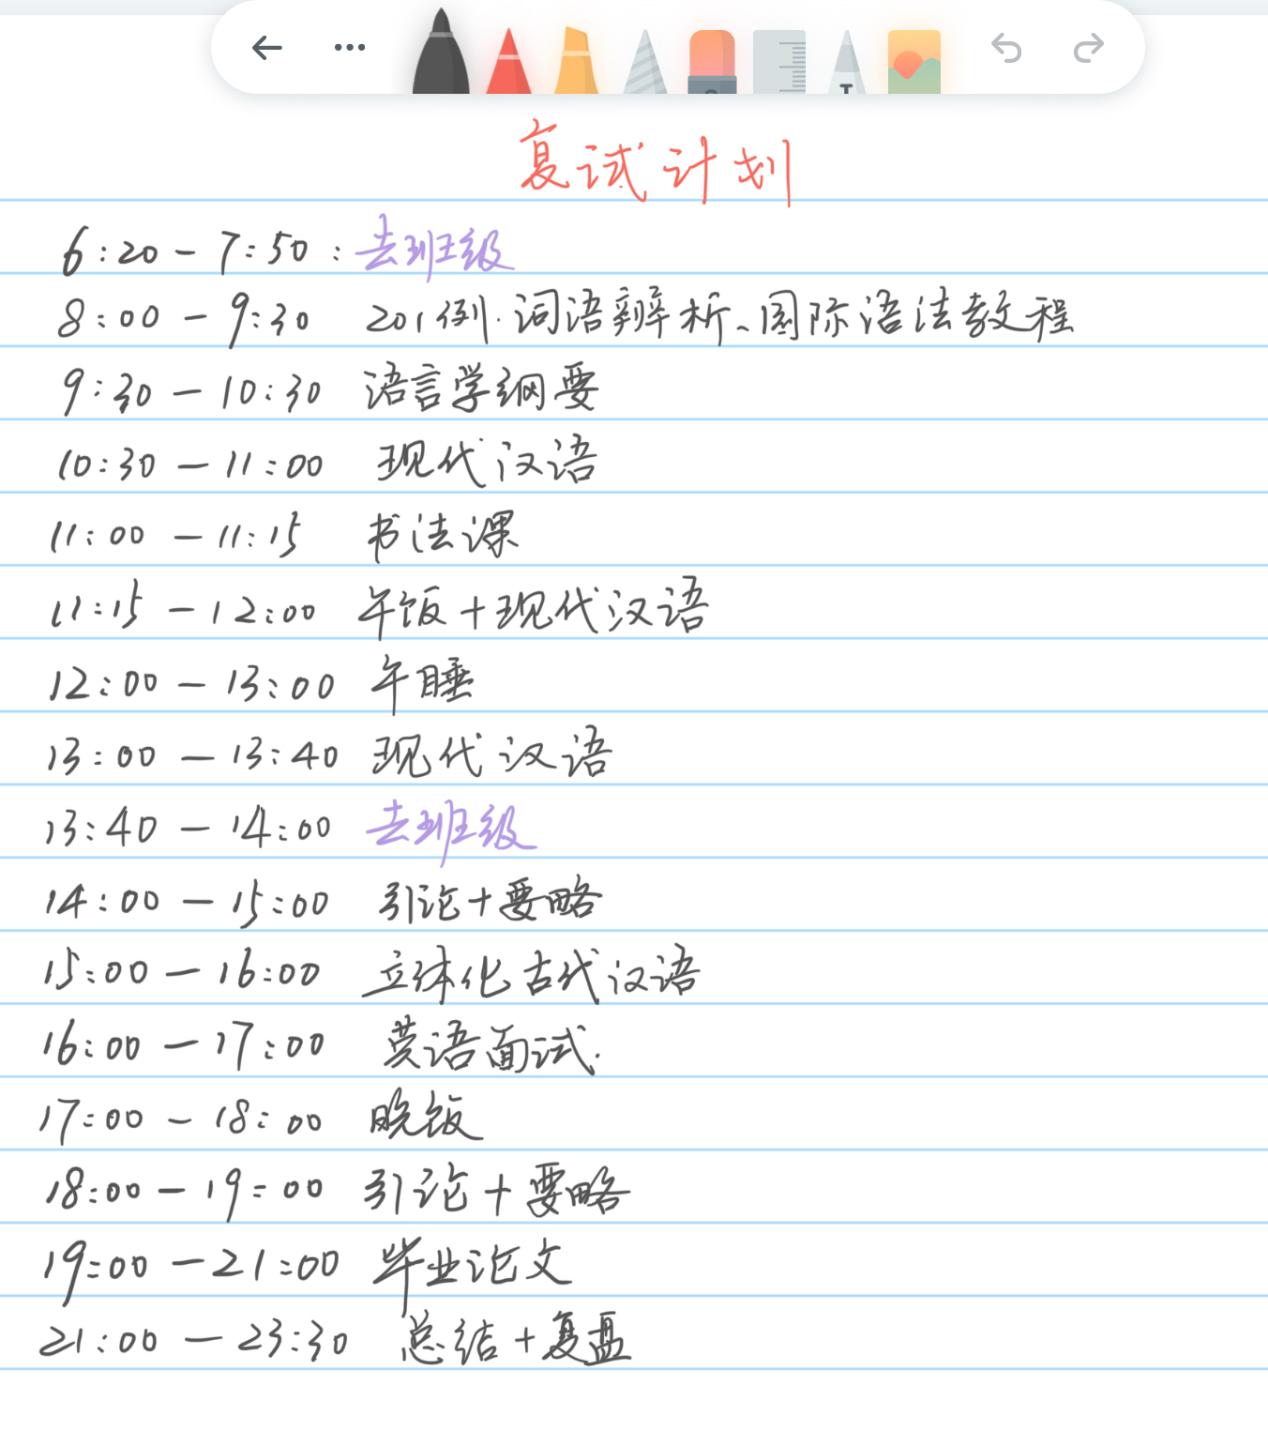 复试计划
6:20-7:50:去班级
8:00-9:30 201例.词语辨析、国际语法教程
9:30-10:30 语言学纲要
10:30-11:00 现代汉语
11:00-11:15 书法课
11:15-12:00 午饭+现代汉语
12:00-13:00 午睡
13:00-13:40 现代汉语
13:40-14:00 去班级
14:00-15:00 引论+要略
15:00-16:00 立体化古代汉语
16:00-17:00 英语面试.
17:00-18:00 晚饭
18:00-19:00 引论+要略
19:00-21:00 毕业论文
21:00-23:30 总结+复盘